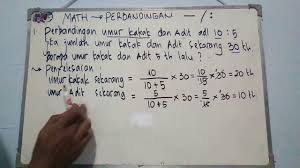 MATH → PERBANDINGAN — / :
1. Perbandingan umur kakak dan Adit adl 10 : 5
jika jumlah umur kakak dan Adit sekarang 30 th.
berapa umur kakak dan Adit 5 th lalu ?
→ Penyelesaian :
umur kakak sekarang = 10/10+5 × 30 = 10/15 × 30 = 20 th
umur Adit sekarang = 5/10+5 × 30 = 5/15 × 30 = 10 th